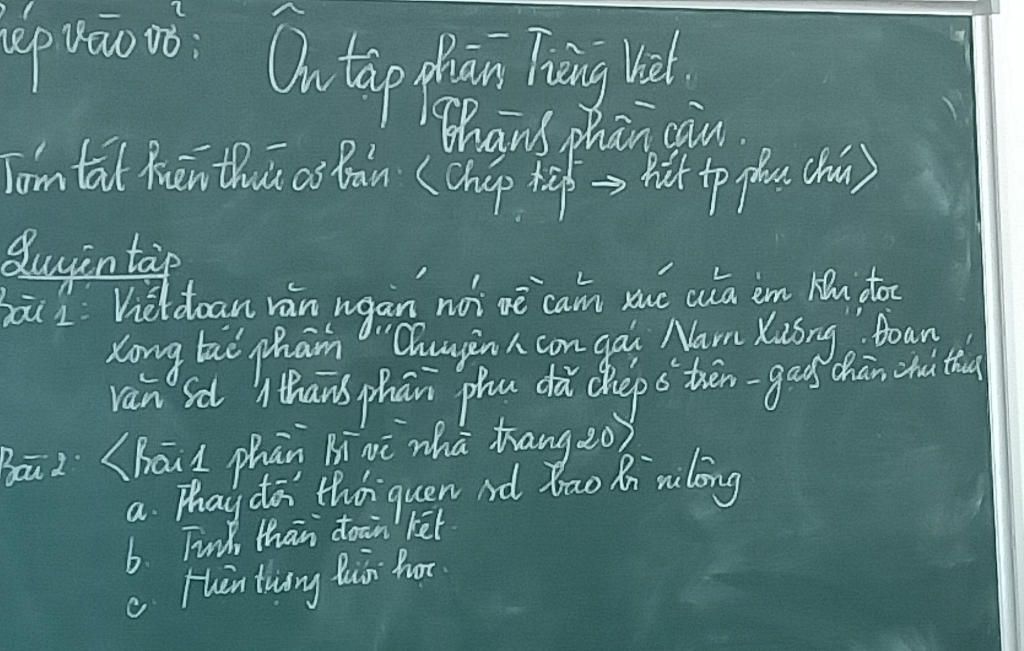 hép vào vở:
Ôn tập phần Tiếng Việt.
Thành phần câu.
Tóm tắt kiến thức cơ bản: <Chép tiếp → hết tp phụ chú>
Luyện tập
Bài 1: Viết đoạn văn ngắn nói về cảm xúc của em khi đọc
xong tác phẩm "Chuyện ^ con gái Nam Xương". Đoạn
văn sd 1 thành phần phụ đã chép ở trên - gạch chân, chú thích
Bài 2: <Bài 1 phần BT về nhà trang 20>
a. Thay đổi thói quen sd bao bì nilông
b. Tinh thần đoàn kết.
c. Hiện tượng lười học.